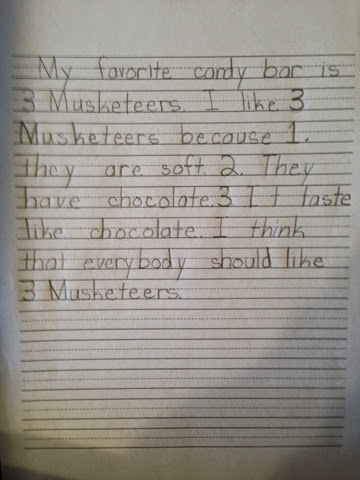 My favorite candy bar is
3 Musketeers. I like 3
Musketeers because 1.
they are soft. 2. They
have chocolate. 3 It taste
like chocolate. I think
that everybody should like
3 Musketeers.